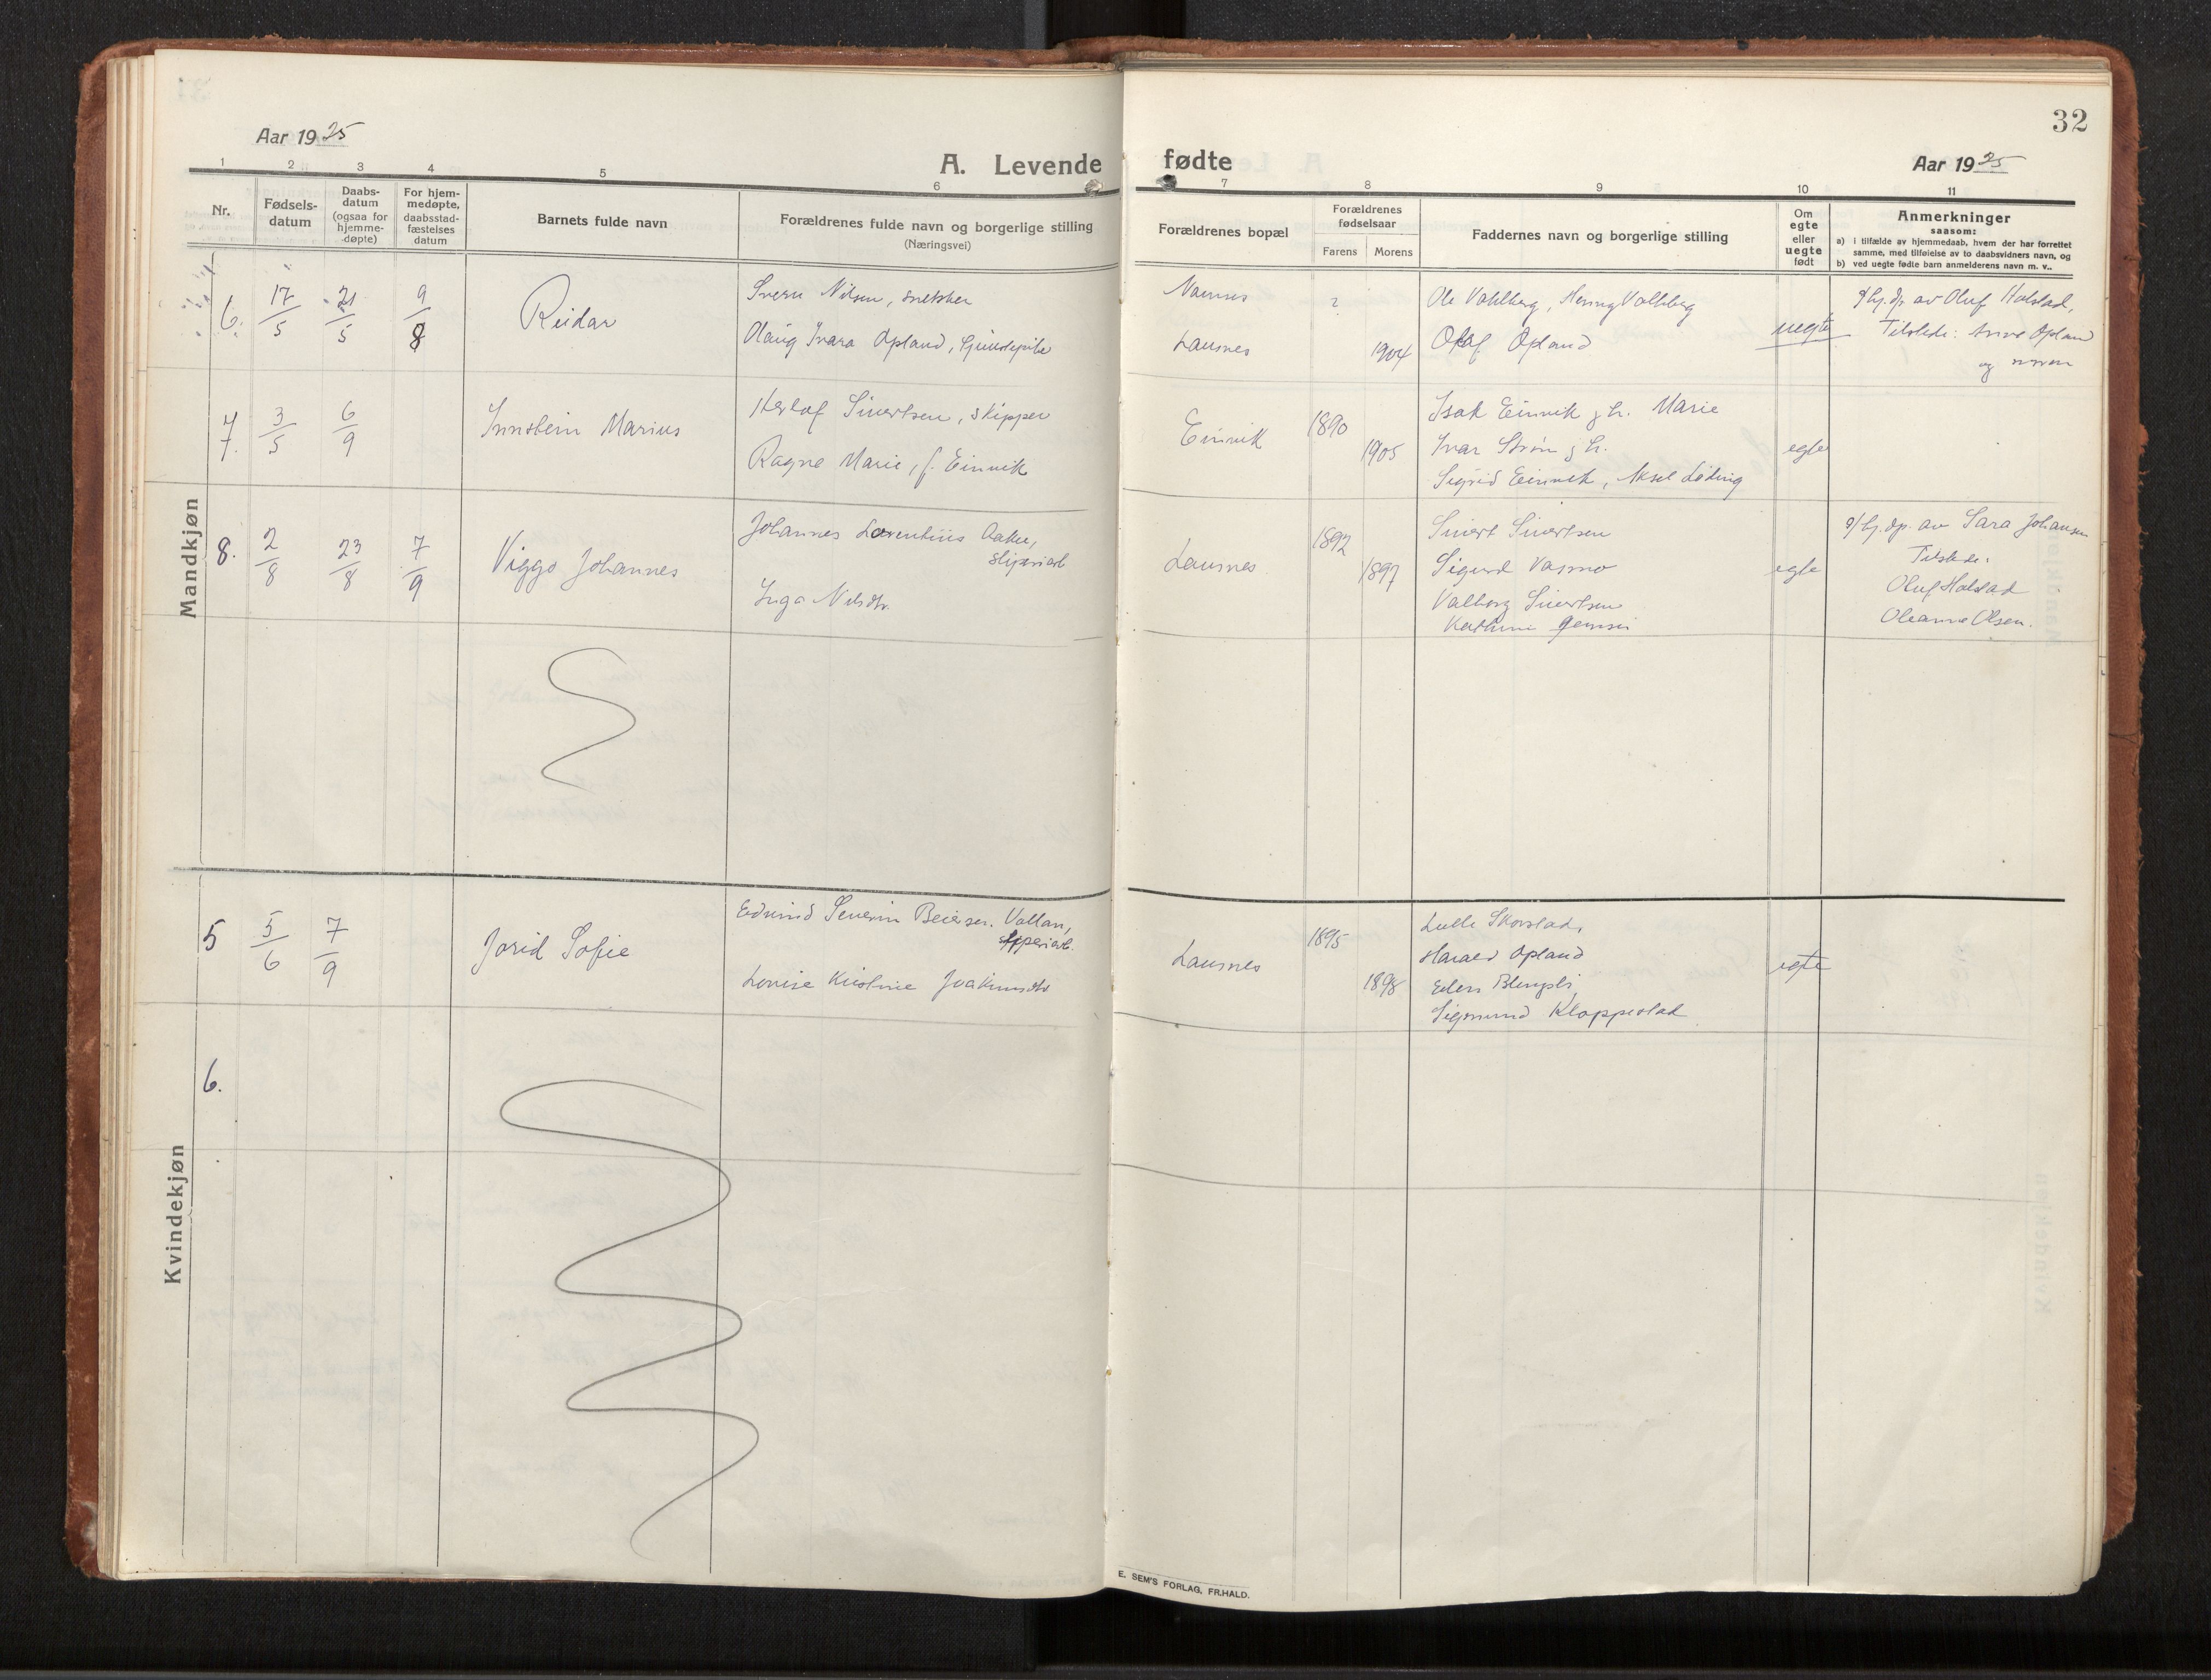 32
Aar 1925
A. Levende fødte
Aar 1925
1 2 3 4 5 6 7 8 9 10 11
Nr.
Fødsels-
datum
Daabs-
datum
(ogsaa for
hjemme-
døpte)
For hjem-
medøpte,
daabsstad-
fæstelses
datum
Barnets fulde navn
Forældrenes fulde navn og borgerlige stilling
(Næringsvei)
Forældrenes bopæl
Forældrenes
fødselsaar
Farens Morens
Faddernes navn og borgerlige stilling
Om
egte
eller
uegte
født
Anmerkninger
saasom:
a) i tilfælde av hjemmedaab, hvem der har forrettet
samme, med tilføielse av to daabsvidners navn, og
b) ved uegte fødte barn anmelderens navn m. v..
Mandkjøn
6. 17/5 21/5 9/8
Reidar
Sverre Nilsen, snekker
Olaug Ivara Opland, tjenestepike
Namsos
Lausnes
?
1904
Ole Vahlberg, Henny Vahlberg
Olaf Opland
uegte
a/ hj. dp. av Oluf Holstad,
Tilstede: Anna Opland
og moren
7. 3/5 6/9
Innstein Marius
Herlof Sivertsen, skipper
Ragna Marie, f. Einvik
Einvik
1890
1905
Isak Einvik & h. Marie
Ivar Strøm & h.
Sigrid Einvik, Aksel Løding
egte
8. 2/8 23/8 7/9
Viggo Johannes
Johannes Laurentius Aaker,
sliperiarb
Inga Nilsdtr.
Lausnes
1892
1897
Sivert Sivertsen
Sigurd Vasmo
Valborg Sivertsen
Kathrine Jensen
egte
a/ hj. dp. av Sara Johansen
Tilstede:
Oluf Holstad
Oleanna Olsen.
Kvindekjøn
5 5/6 7/9
Jorid Sofie
Edvind Severin Beierser. Vallan,
sliperiarb.
Lovise Kristine Joakimsdtr
Lausnes
1895
1898
Lulle Skorstad,
Harald Opland
Ellen Blengsli
Sigmund Kloppestad
egte
6.
E. SEM'S FORLAG, FR.HALD.